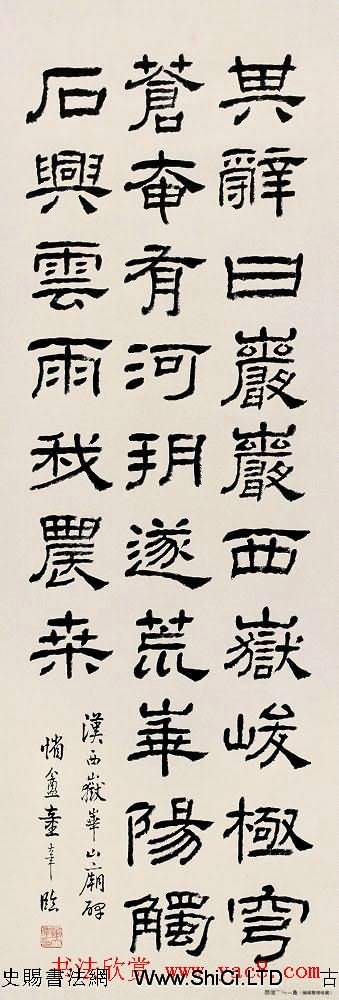 其辭曰巖巖西嶽峻極穹
蒼奄有河朔遂荒華陽觸
石興雲雨我農桒
漢西嶽華山廟碑
盦童章臨
书法欣赏 www.yac8.com
史賜書法網 www.ShiCi.LTD 古